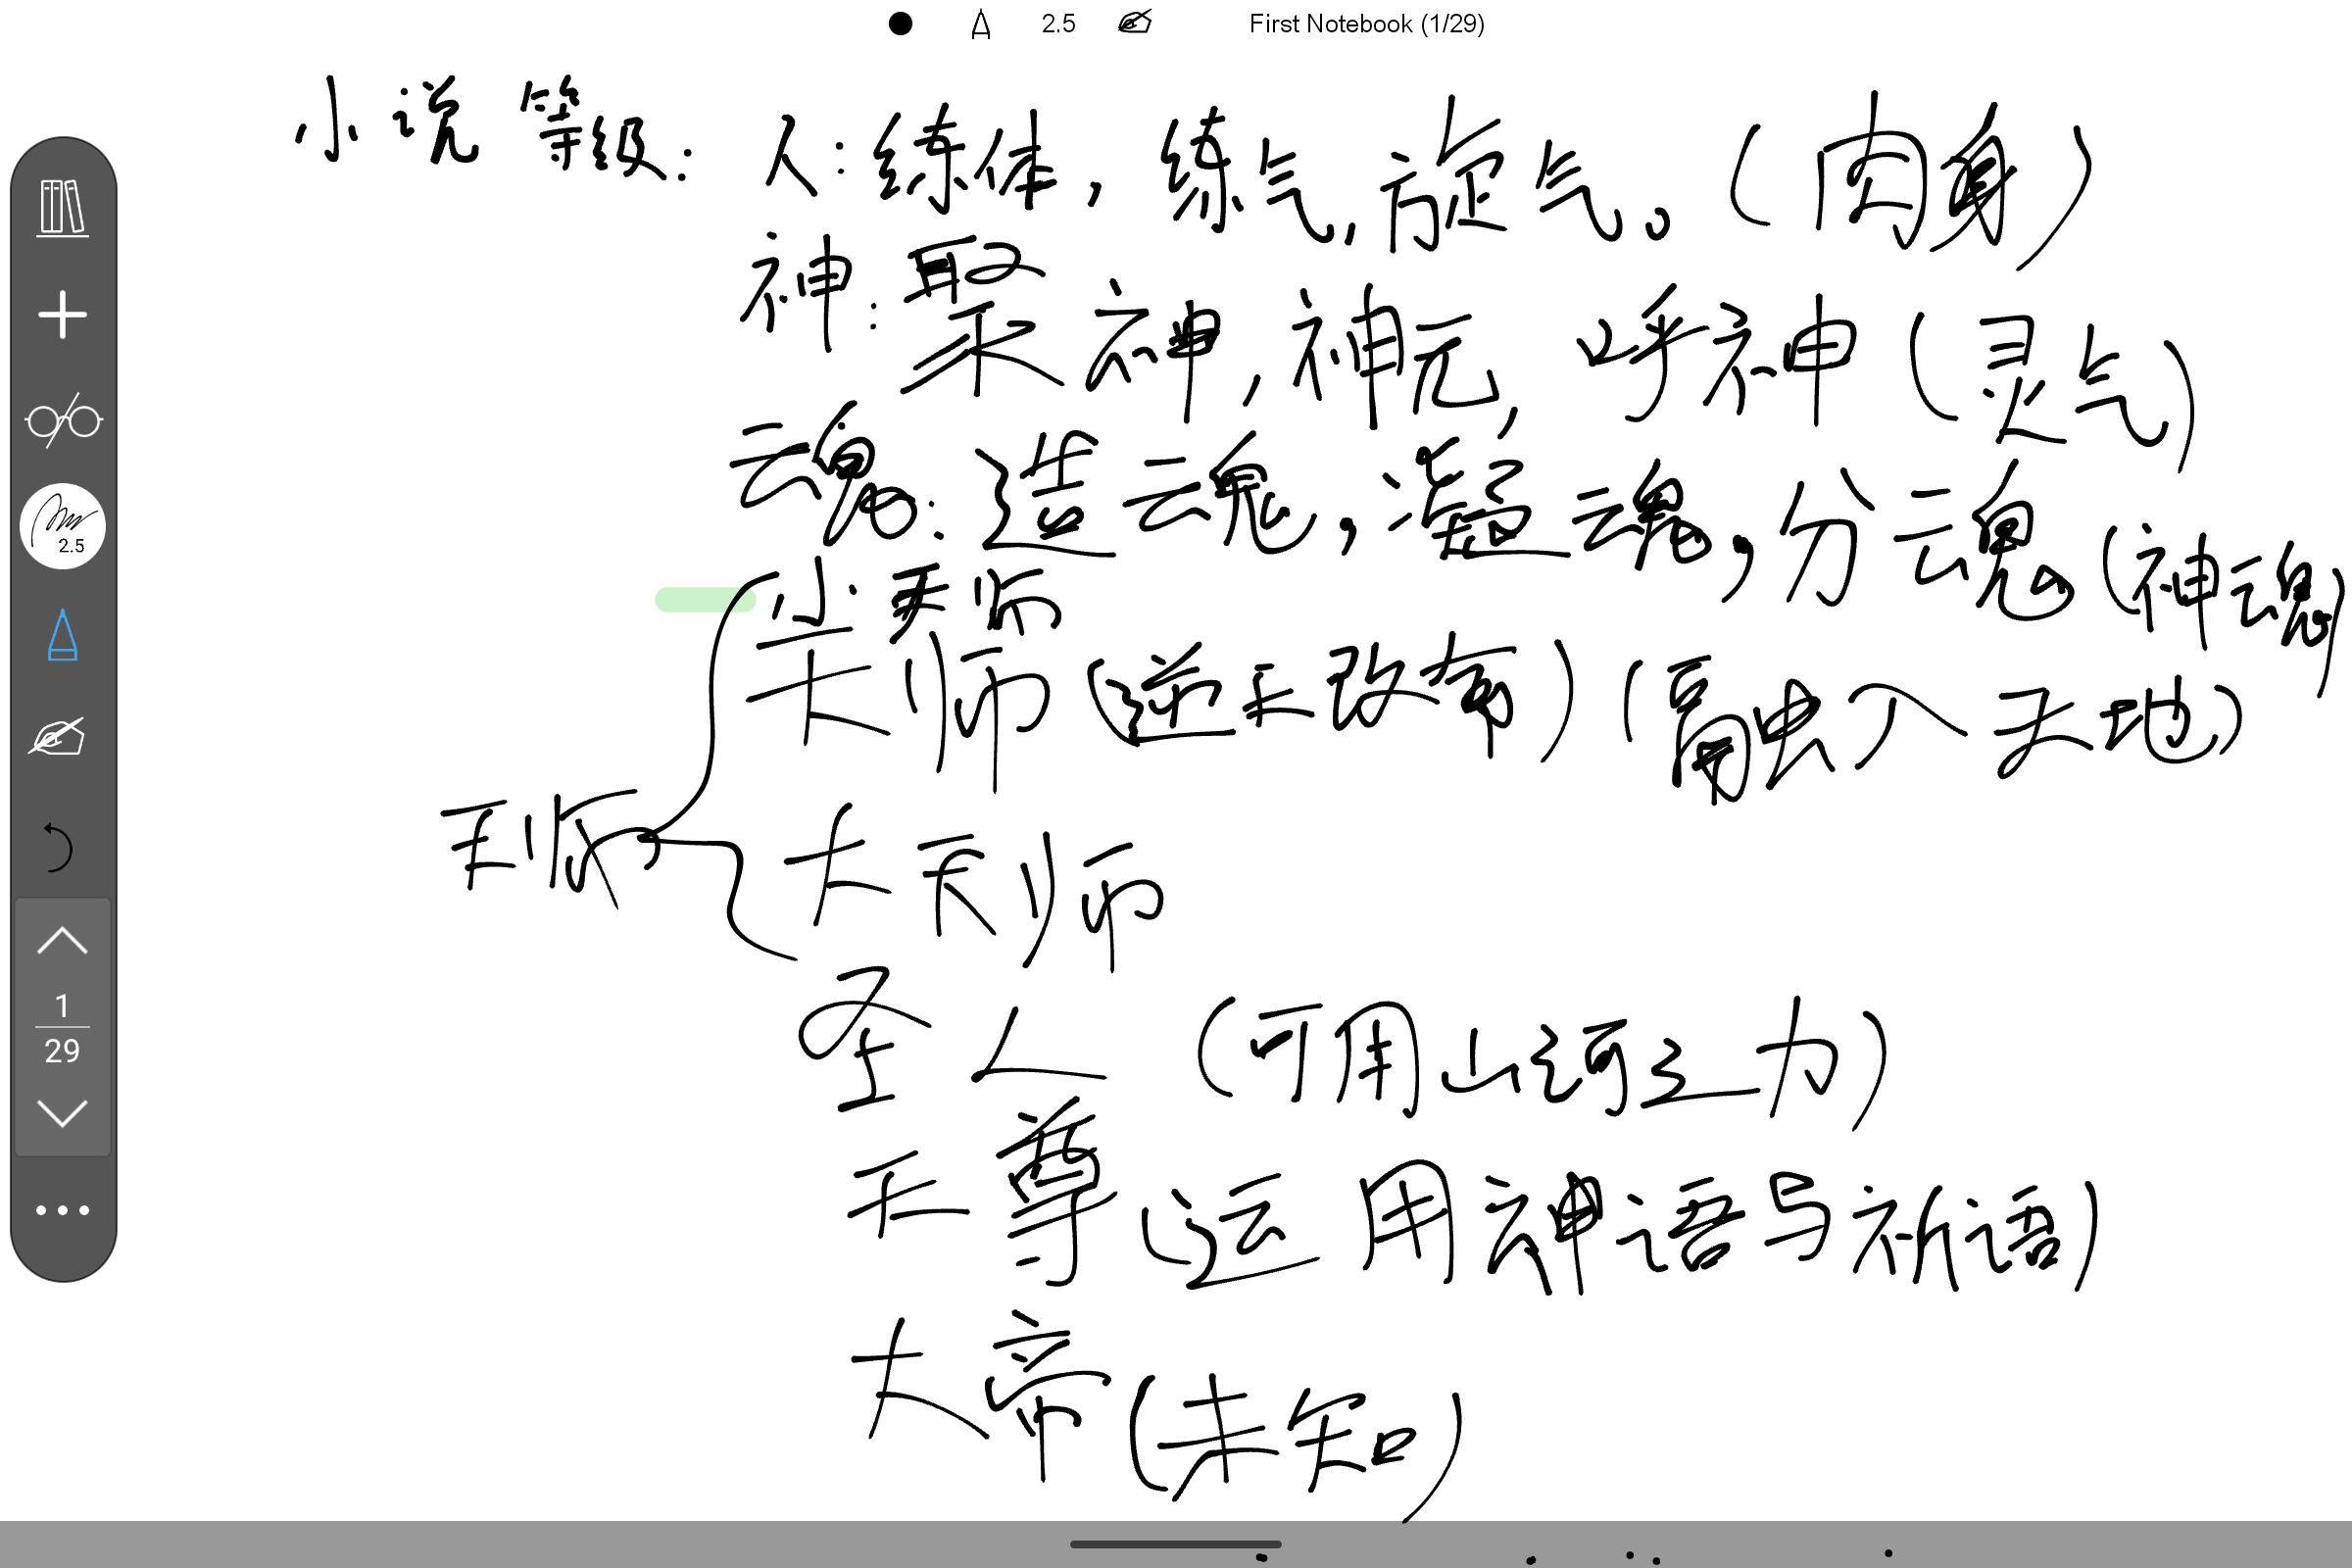 2.5 First Notebook (1/29)
小说等级：人：练体，练气，旋气。（肉身）
神：聚神，神元，呼神（灵气）
魂：造魂，凝魂，分魂（神魂）
小天师
天师（逆天改命）（融入天地）
天师
大天师
圣人（可用山河之力）
天尊（运用神语与祈语）
大帝（未知）
2.5
1
29